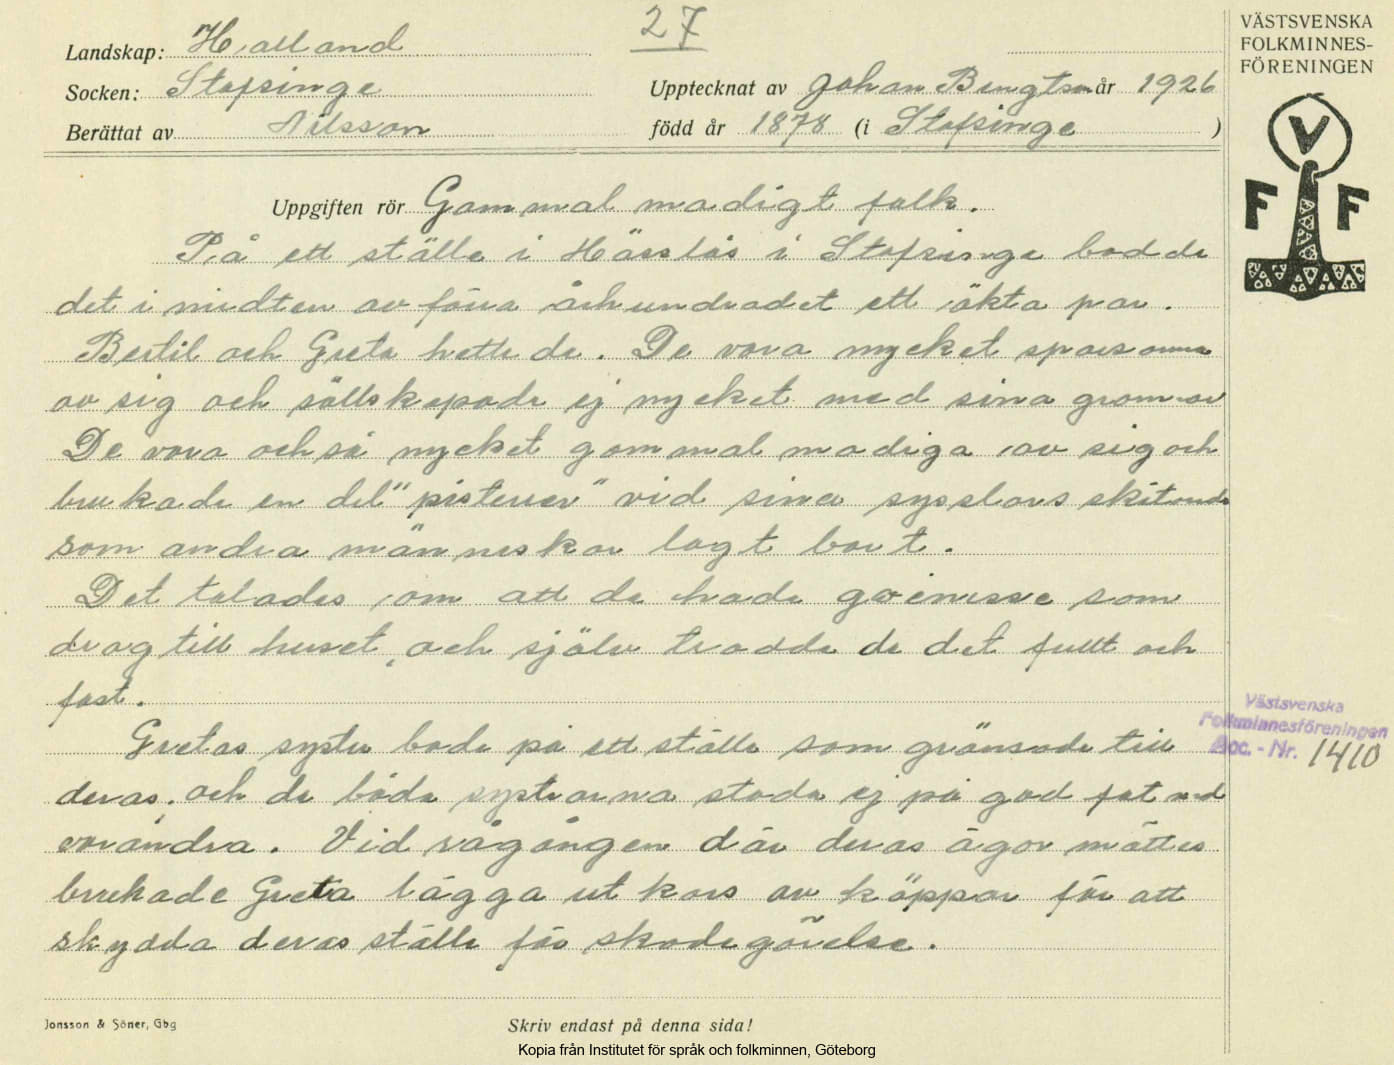 27
VÄSTSVENSKA
FOLKMINNES-
FÖRENINGEN
Landskap: Halland
Socken: Stafsinge
Upptecknat av Johan Bengtson år 1926
Berättat av Nilsson
född år 1878 (i Stafsinge )
V
F F
Uppgiften rör Gammal madigt folk.
På ett ställe i Hässlås i Stafsinge bodde
det i midten av förra århundradet ett äkta par.
Bertil och Greta hette de. De vora mycket sparsamma
av sig och sällskapade ej mycket med sina grannar
De vora också mycket gammalmadiga av sig och
brukade en del "pisterier" vid sina sysslors skötande
som andra människor lagt bort.
Det talades om att de hade goenisse som
drog till huset, och själv trodde de det fullt och
fast.
Gretas syster bode på ett ställe som gränsade till
deras, och de båda systrarna stodo ej på god fot med
varandra. Vid rågången där deras ägor möttes
brukade Greta lägga ut kors av käppar för att
skydda deras ställe för skadegörelse.
Västsvenska
Folkminnesföreningen
Acc. - Nr. 1410
Jonsson & Söner, Gbg
Skriv endast på denna sida!
Kopia från Institutet för språk och folkminnen, Göteborg